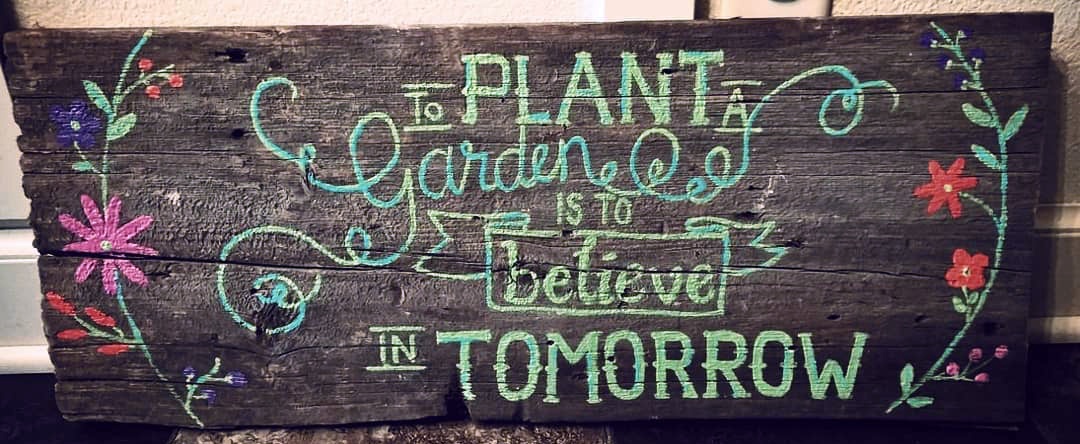 To PLANT A
Garden
IS TO
believe
IN TOMORROW